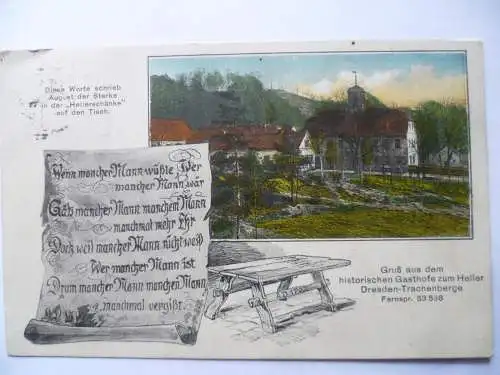 Diese Worte schrieb
August der Starke
in der „Hellerschänke"
auf den Tisch.
Wenn mancher Mann wüßte Wer
mancher Mann wär
Gäb mancher Mann manchem Mann
manchmal mehr Ehr
Doch weil mancher Mann nicht weiß
Wer mancher Mann ist
Drum mancher Mann manchen Mann
manchmal vergißt.
Gruß aus dem
historischen Gasthofe zum Heller
Dresden-Trachenberge
Fernspr. 53598